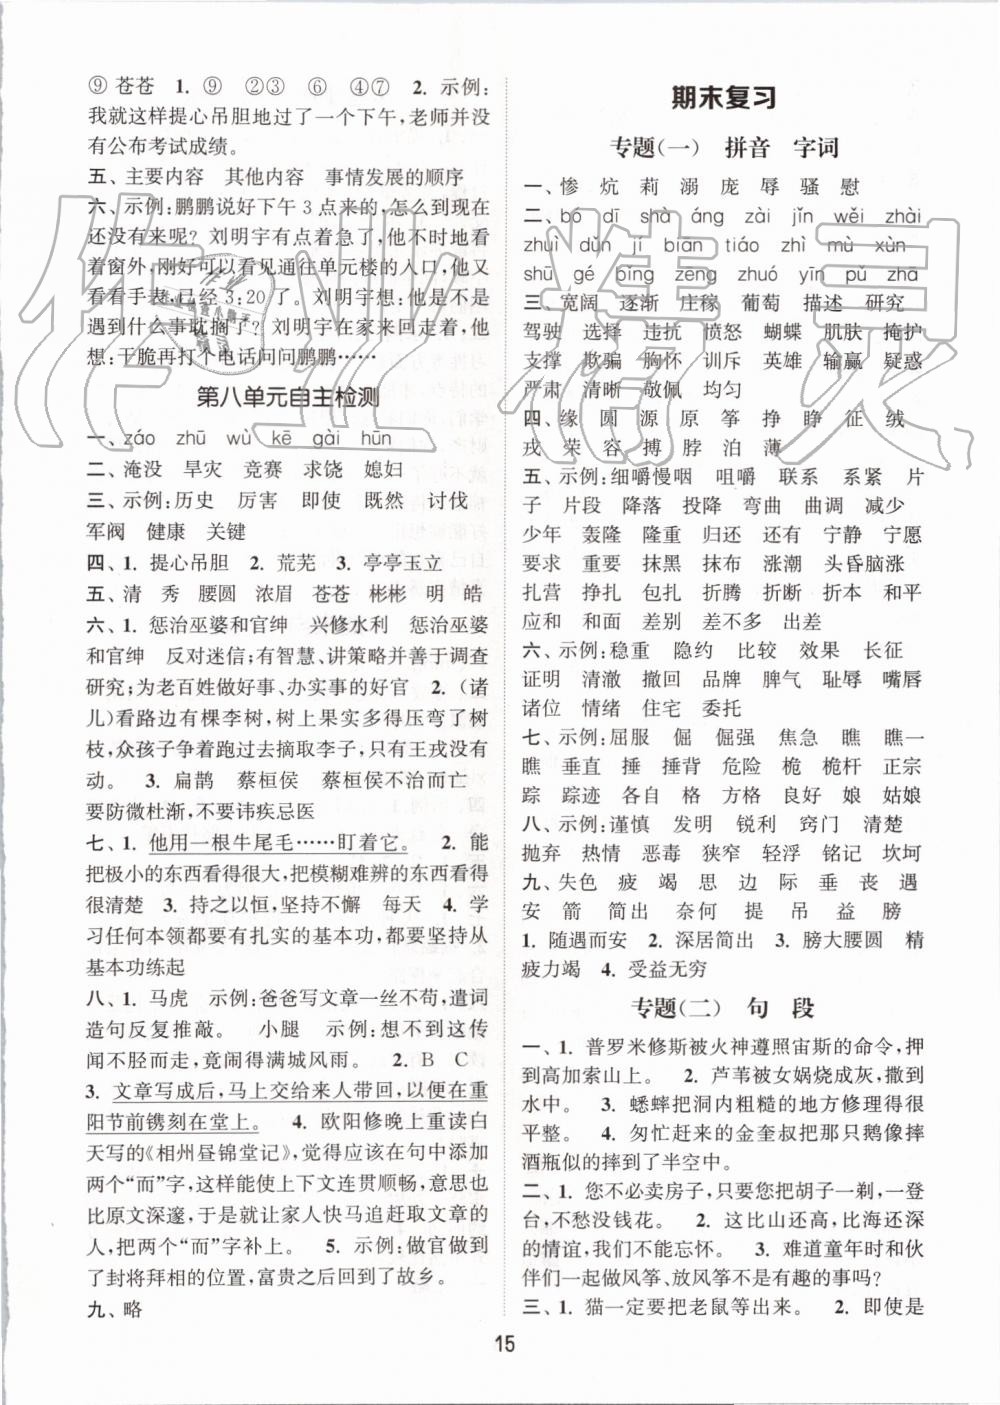 ⑨ 苍苍 1. ⑨ ②③ ⑥ ④⑦ 2. 示例:
我就这样提心吊胆地过了一个下午,老师并没
有公布考试成绩。
五、主要内容 其他内容 事情发展的顺序
六、示例:鹏鹏说好下午3点来的,怎么到现在
还没有来呢？刘明宇有点着急了,他不时地看
着窗外,刚好可以看见通往单元楼的入口,他又
看看手表,已经3:20了。刘明宇想:他是不是
遇到什么事耽搁了？刘明宇在家来回走着,他
想:干脆再打个电话问问鹏鹏……
第八单元自主检测
一、záo zhū wù kē gài hūn
二、淹没 旱灾 竞赛 求饶 媳妇
三、示例:历史 厉害 即使 既然 讨伐
军阀 健康 关键
四、1. 提心吊胆 2. 荒芜 3. 亭亭玉立
五、清 秀 腰圆 浓眉 苍苍 彬彬 明 皓
六、1. 惩治巫婆和官绅 兴修水利 惩治巫婆
和官绅 反对迷信;有智慧、讲策略并善于调查
研究;为老百姓做好事、办实事的好官 2.(诸
儿)看路边有棵李树,树上果实多得压弯了树
枝,众孩子争着跑过去摘取李子,只有王戎没有
动。 3. 扁鹊 蔡桓侯 蔡桓侯不治而亡
要防微杜渐,不要讳疾忌医
七、1. 他用一根牛尾毛……盯着它。 2. 能
把极小的东西看得很大,把模糊难辨的东西看
得很清楚 3. 持之以恒,坚持不懈 每天 4. 学
习任何本领都要有扎实的基本功,都要坚持从
基本功练起
八、1. 马虎 示例:爸爸写文章一丝不苟,遣词
造句反复推敲。 小腿 示例:想不到这传
闻不胫而走,竟闹得满城风雨。 2. B C
3. 文章写成后,马上交给来人带回,以便在重
阳节前镌刻在堂上。 4. 欧阳修晚上重读白
天写的《相州昼锦堂记》,觉得应该在句中添加
两个“而”字,这样能使上下文连贯顺畅,意思也
比原文深邃,于是就让家人快马追赶取文章的
人,把两个“而”字补上。 5. 示例:做官做到
了封将拜相的位置,富贵之后回到了故乡。
九、略
期末复习
专题(一) 拼音 字词
一、惨 炕 莉 溺 庞 辱 骚 慰
二、bó dī shà áng zài jǐn wěi zhài
zhuì dǔn jí bian tiáo zhì mù xùn
shū gé bǐng zēng zhuó yīn pǔ zha
三、宽阔 逐渐 庄稼 葡萄 描述 研究
驾驶 选择 违抗 愤怒 蝴蝶 肌肤 掩护
支撑 欺骗 胸怀 训斥 英雄 输赢 疑惑
严肃 清晰 敬佩 均匀
四、缘 圆 源 原 筝 挣 睁 征 绒
戎 荣 容 搏 脖 泊 薄
五、示例:细嚼慢咽 咀嚼 联系 系紧 片
子 片段 降落 投降 弯曲 曲调 减少
少年 轰隆 隆重 归还 还有 宁静 宁愿
要求 重要 抹黑 抹布 涨潮 头昏脑涨
扎营 挣扎 包扎 折腾 折断 折本 和平
应和 和面 差别 差不多 出差
六、示例:稳重 隐约 比较 效果 长征
证明 清澈 撤回 品牌 脾气 耻辱 嘴唇
诸位 情绪 住宅 委托
七、示例:屈服 倔 倔强 焦急 瞧 瞧一
瞧 垂直 捶 捶背 危险 桅 桅杆 正宗
踪 踪迹 各自 格 方格 良好 娘 姑娘
八、示例:谨慎 发明 锐利 窍门 清楚
抛弃 热情 恶毒 狭窄 轻浮 铭记 坎坷
九、失色 疲 竭 思 边 际 垂 丧 遇
安 箭 简出 奈何 提 吊 益 膀
1. 随遇而安 2. 深居简出 3. 膀大腰圆 精
疲力竭 4. 受益无穷
专题(二) 句 段
一、1. 普罗米修斯被火神遵照宙斯的命令,押
到高加索山上。 2. 芦苇被女娲烧成灰,撒到
水中。 3. 蟋蟀把洞内粗糙的地方修理得很
平整。 4. 匆忙赶来的金奎叔把那只鹅像摔
酒瓶似的摔到了半空中。
二、1. 您不必卖房子,只要您把胡子一剃,一登
台,不愁没钱花。 2. 这比山还高、比海还深
的情谊,我们不能忘怀。 3. 难道童年时和伙
伴们一起做风筝、放风筝不是有趣的事吗?
三、1. 猫一定要把老鼠等出来。 2. 即使是
15
作业精灵